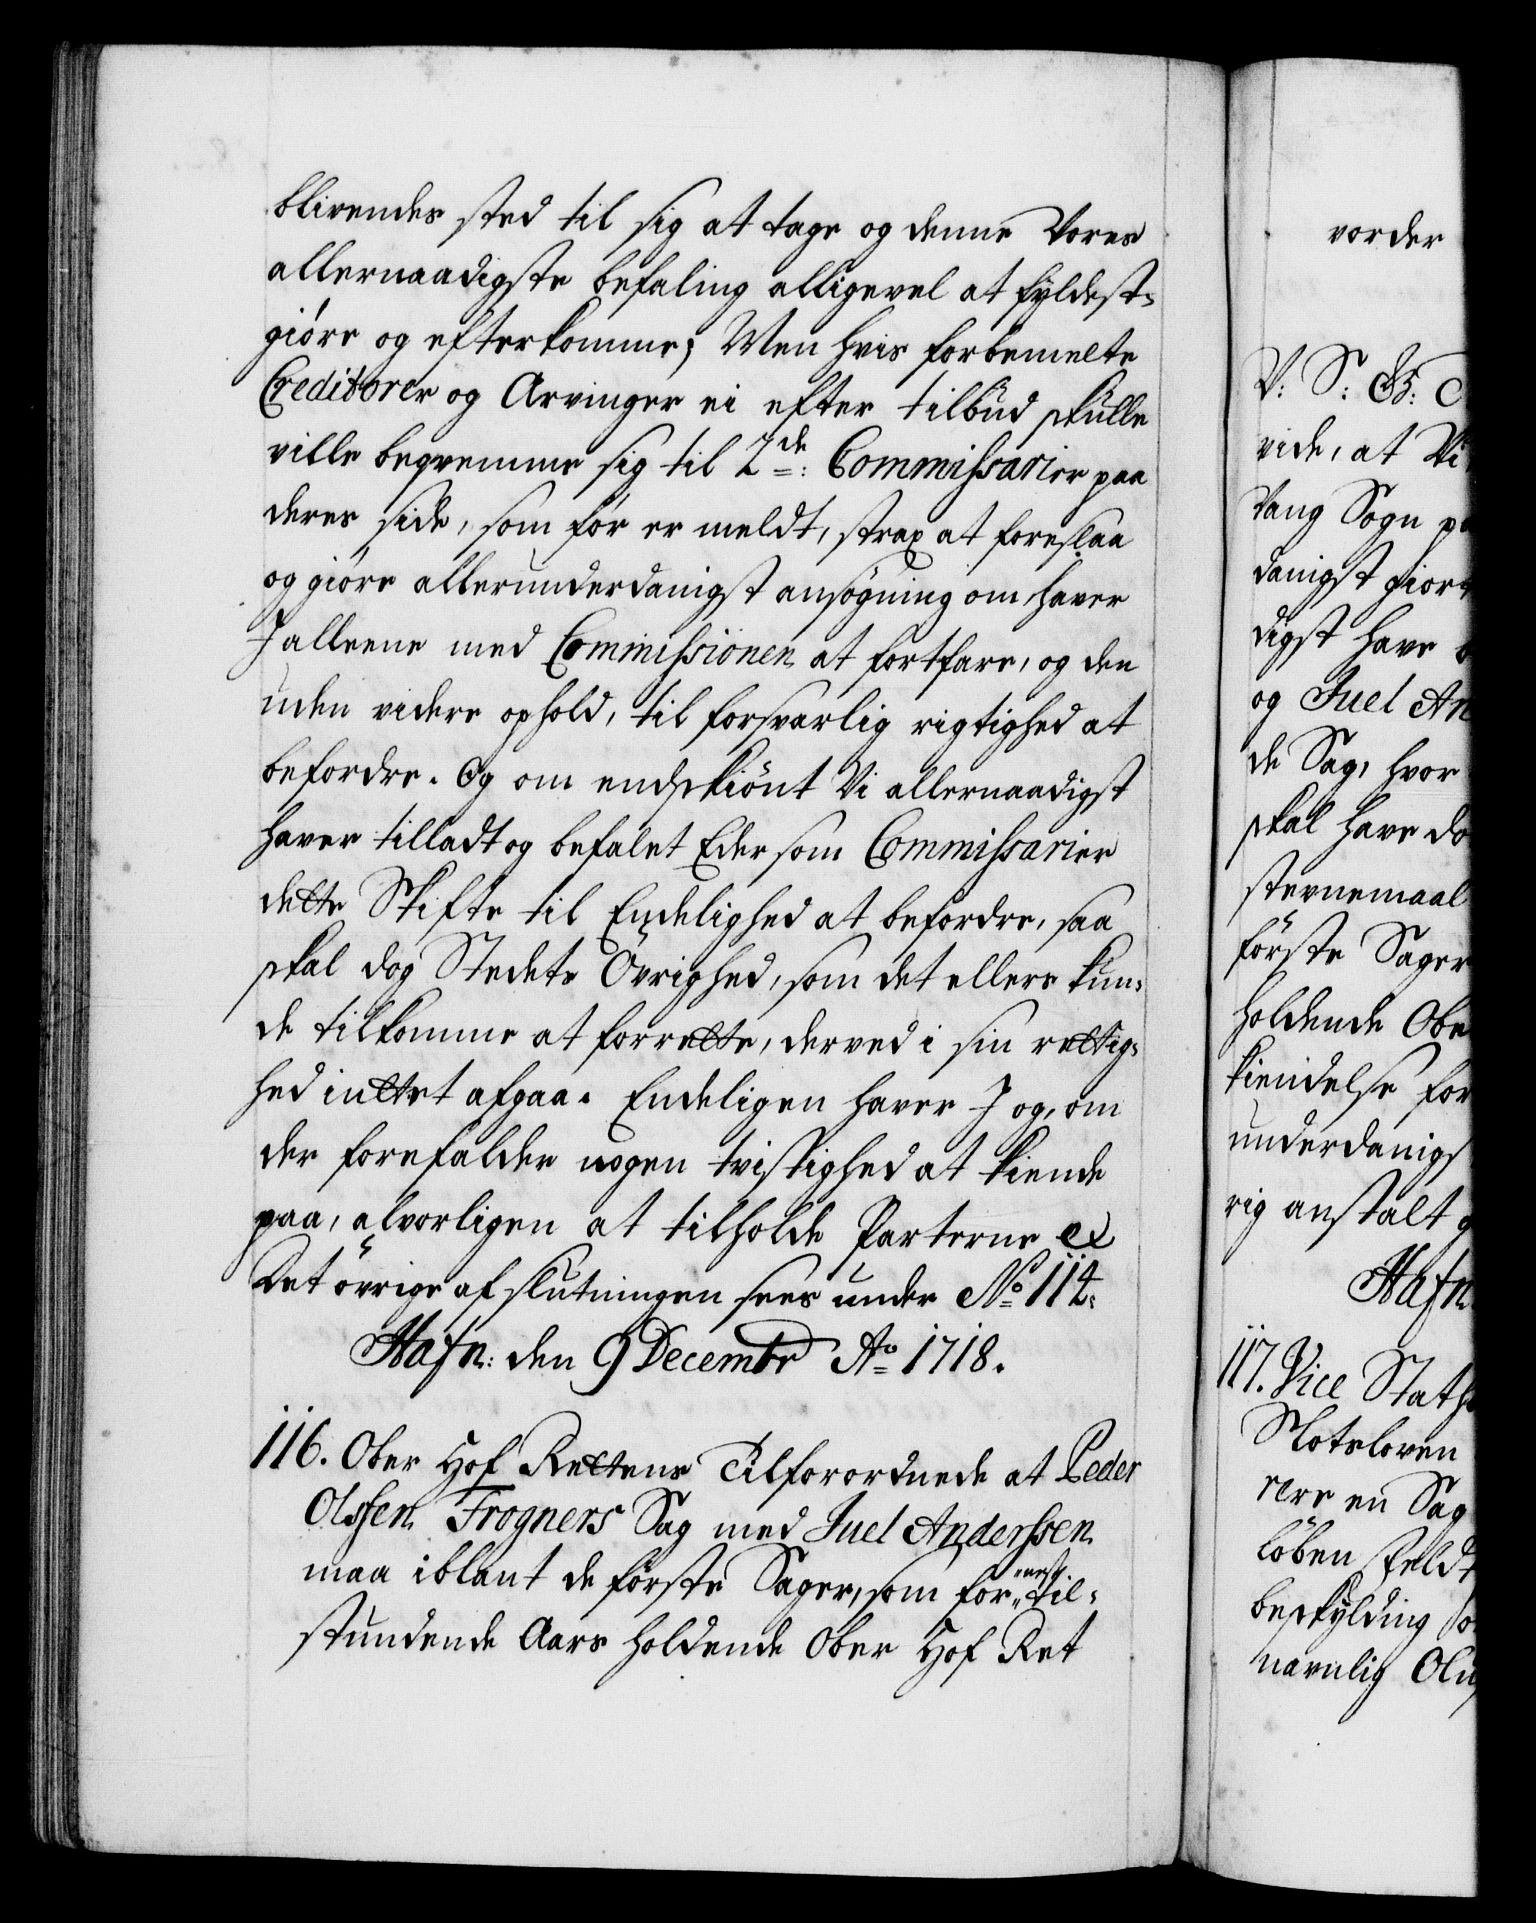 blivendes sted til sig at tage og denne Vores
allernaadigste befaling alligevel at fyldest-
giöre og efterkomme; Men hvis forbemelte
Creditorer og Arvinger ei efter tilbud skulle
ville beqvemme sig til 2de: Commissarier paa
deres side, som før er meldt, strax at foreslaa
og giöre allerunderdanigst ansögning om, haver
I alleene med Commissionen at fortfare, og den
uden videre ophold, til forsvarlig rigtighed at
befordre. Og om endskiönt Vi allernaadigst
haver tilladt og befalet Eder som Commissarier
dette Skifte til Endelighed at befordre, saa
skal dog Stedets Övrighed, som det ellers kun-
de tilkomme at forrette, derved i sin rettig-
hed intet afgaa. Endeligen haver I og, om
der forefalder nogen tvistighed at kiende
paa, alvorligen at tilholde Parterne &
Det övrige af slutningen sees under No 114.
Hafn: den 9 Decembr Ao 1718.
116. Ober Hof Rettens Tilforordnede at Peder
Olssen Frogners Sag med Juel Anderssen
maa iblant de förste Sager, som for næst til-
stundende Aars holdende Ober Hof Ret
vorder
V: S: G: C
vide, at Vi
Vang Sogn p
danigst giort
digst have b
og Juel An
de Sag, hvor
skal have do
stevnemaal
förste Sager
holdende Obe
kiendelse for
underdanigs
rig anstalt
Hafn.
117. Vice Stath
Slotsloven
være en Sag
löben Feldt
beskylding so
navnlig Olu